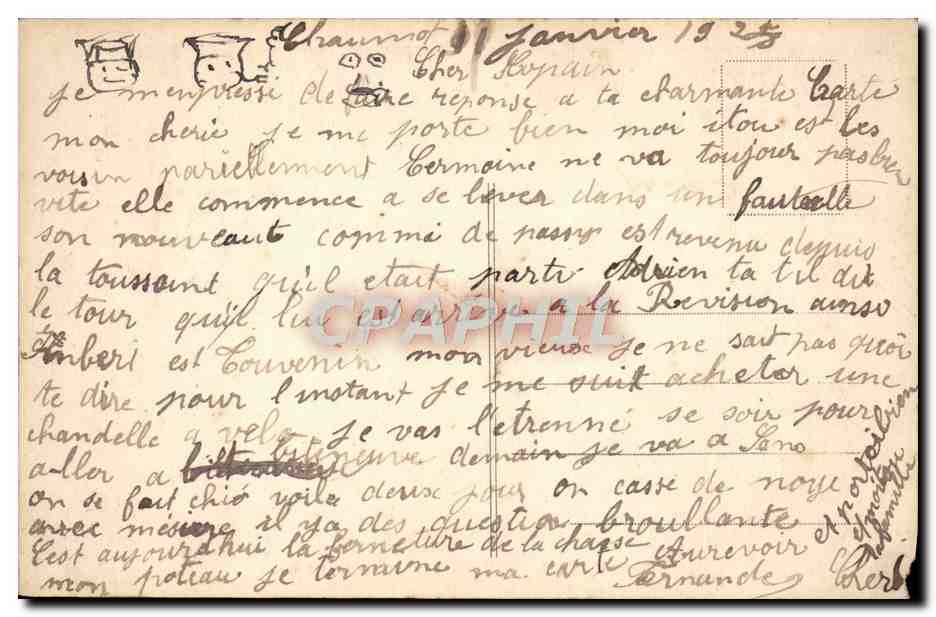 Chaumot 11 janvier 1925
Cher Copain
je m'enpresse de faire reponse a ta charmante Carte
mon cherie je me porte bien moi itou est les
voisin pariellement Germaine ne va toujour pas bien
vite elle commence a se lever dans un fauteulle
son nouveaut commi de passy est revenu depuis
la toussaint qu'il etait parti Adrien ta til dit
le tour qu'il lui est arrive a la Revision ainsi
Imbert est Touvenin mon vieux je ne sait pas quoi
te dire pour l'instant je me suit acheter une
chandelle a velo je vas l'etrenné se soir pour
aller a villeneuve demain je va a Sens
on se fait chié voila deux jour on casse de noye
avec mesière il ya des question broullante
C'est aujourd'hui la fermeture de la chasse Aurevoir
mon poteau je termine ma carte Fernande Cherb
et porte toi bien
et moi aussi
ta famille
CPAPHIL